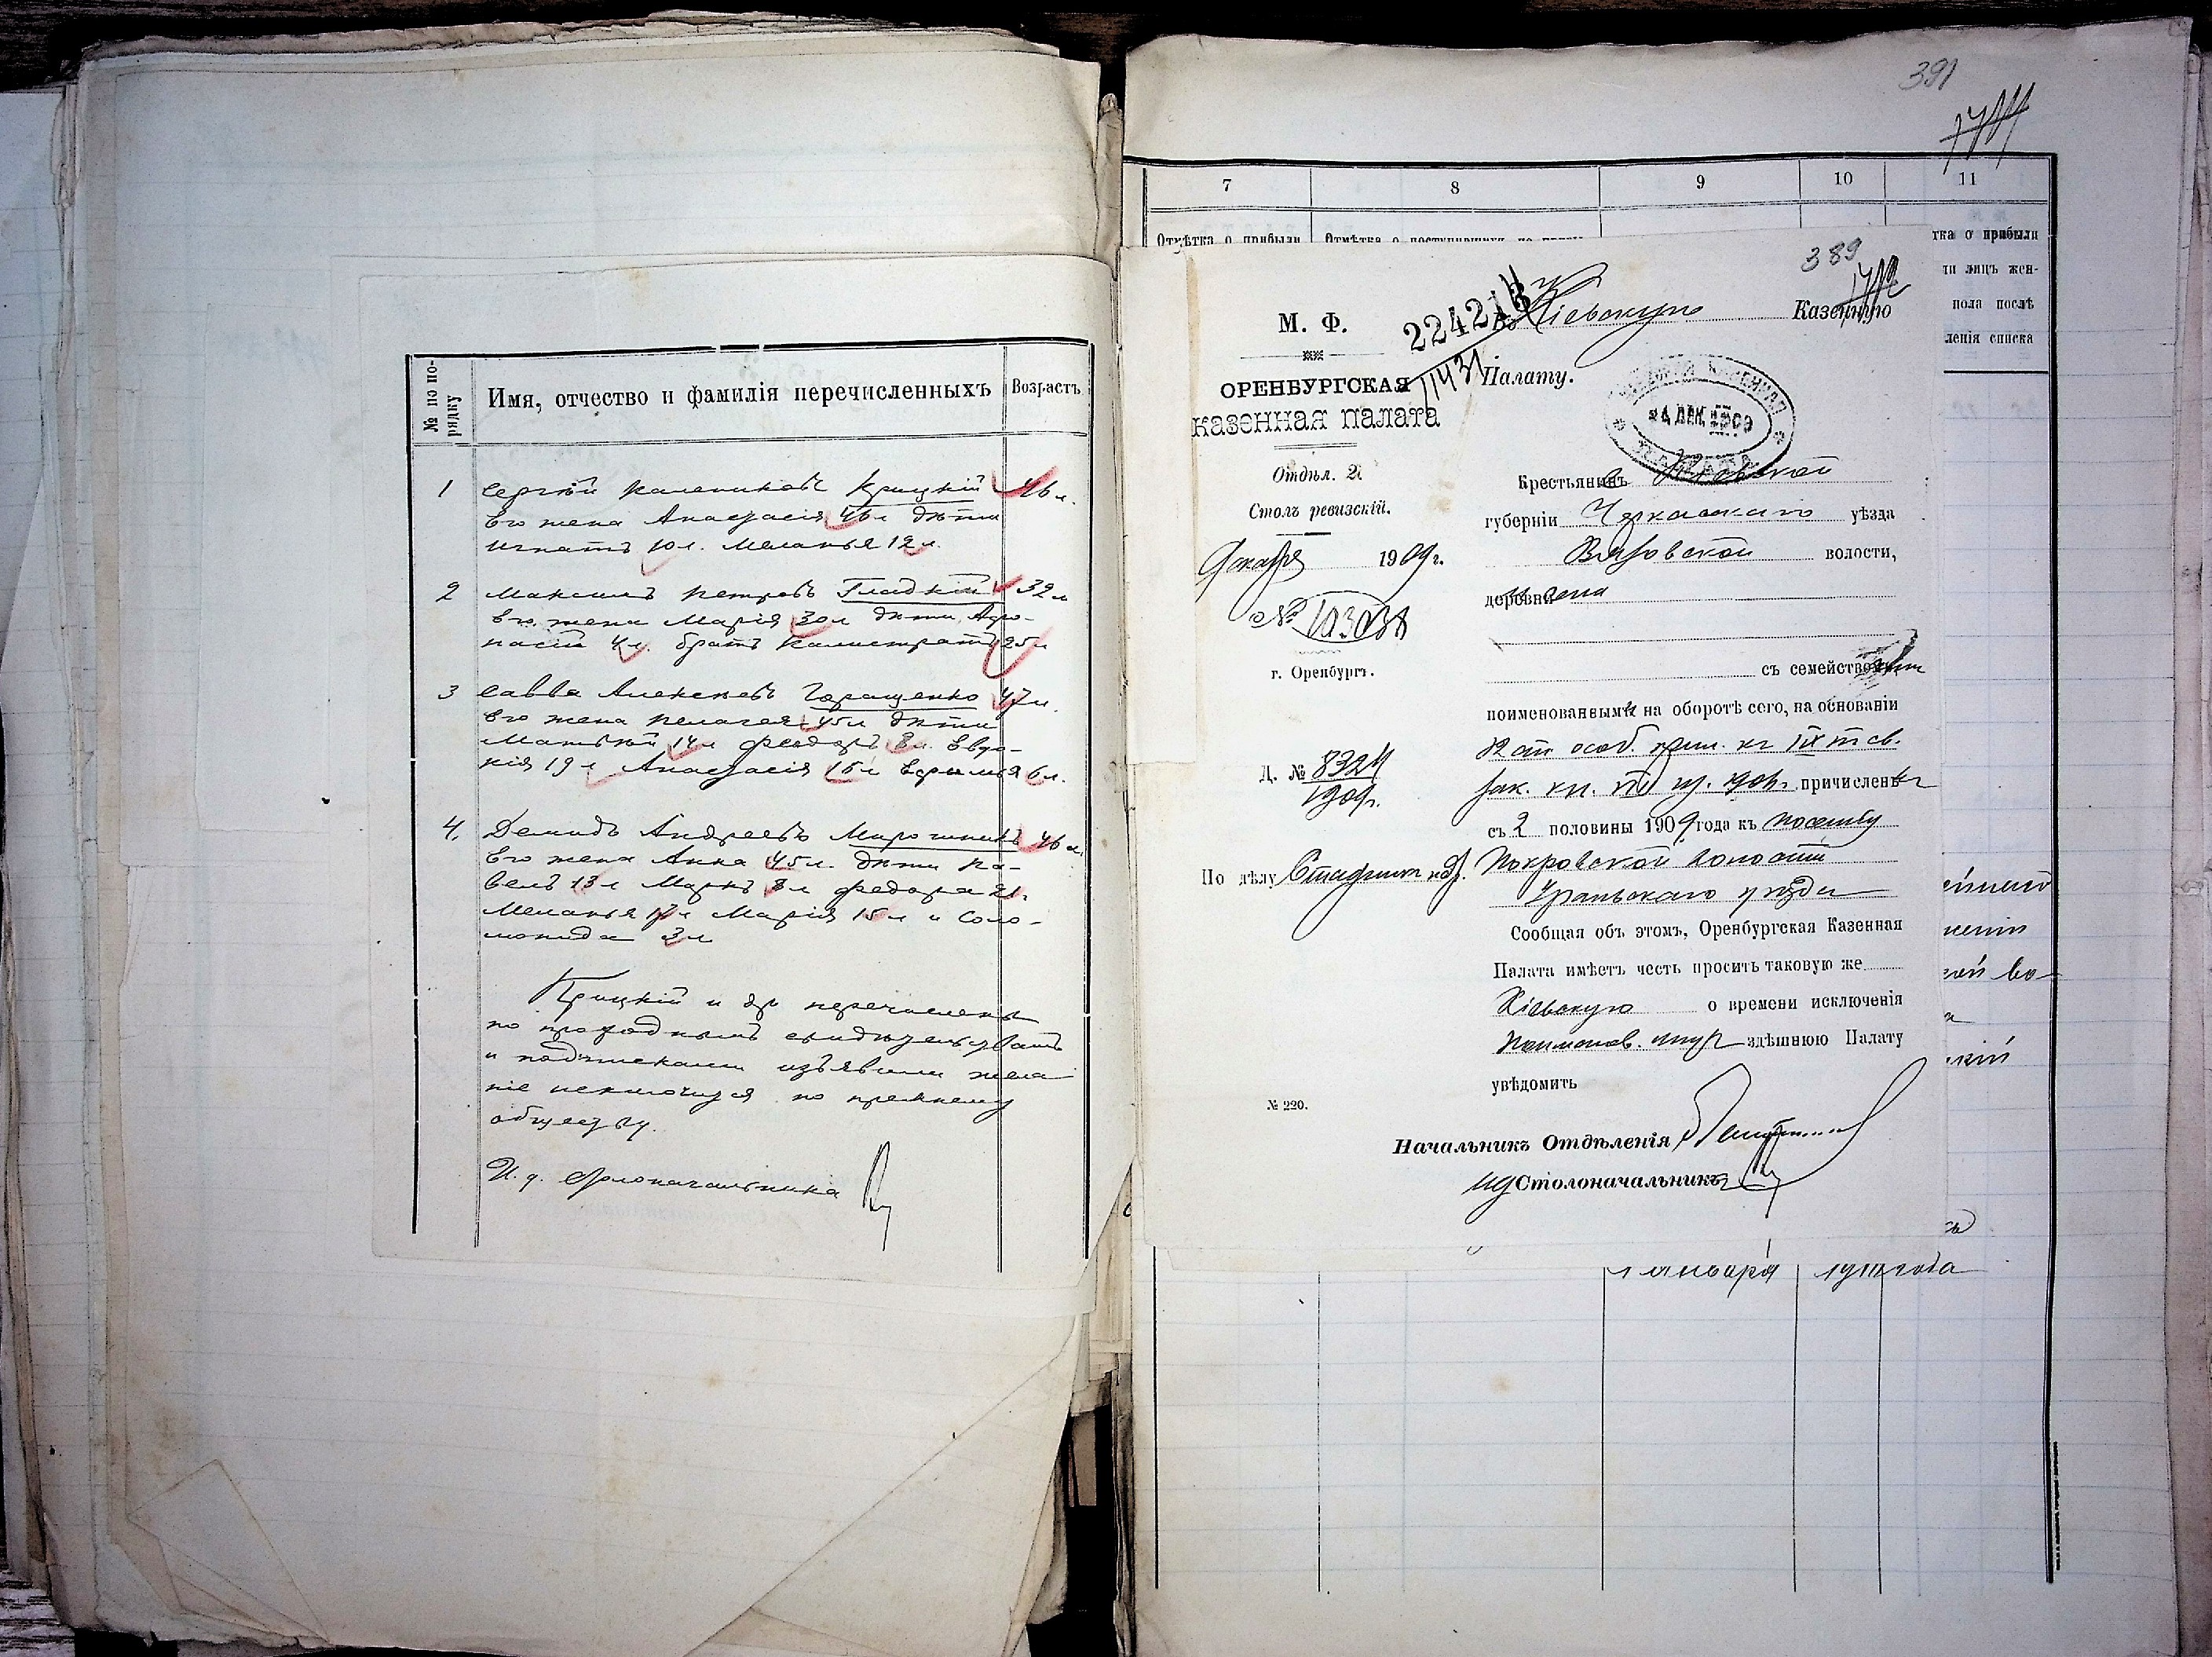 № по по-
рядку
Имя, отчество и фамилія перечисленныхъ
Возрастъ
1 Сергѣй Калениковъ Крицкій 46 л.
Его жена Анастасія 46 л дѣти
Игнатъ 10 л. Меланья 12 л.
2 Максимъ Петровъ Гладкій 32 л
Его жена Марія 30 л дѣти Афо-
насій 4 л. братъ Калистратъ 25 л
3 Савва Алексѣевъ Геращенко 47 л.
Его жена Пелагея 45 л дѣти
Матвѣй 14 л Феодоръ 8 л. Евдо-
кія 19 л Анастасія 15 л Ефимія 6 л.
4. Демидъ Андреевъ Мирошникъ 46 л.
Его жена Анна 45 л. дѣти Па-
велъ 13 л Маркъ 8 л Федора 21.
Меланья 17 л Марія 15 л и Соло-
монида 3 л
Крицкій и др перечислены
по проходнымъ свидѣтельствамъ
и подписками изъявили жела
ніе исключится по прежнему
обществу.
И. д. Столоначальника
391
7 8 9 10 11
Отмѣтка о прибыли
тка о прибыли
ли лицъ жен-
пола послѣ
ленія списка
389
М. Ф.
22421
11431
Кіевскую Казенную
Палату.
ОРЕНБУРГСКАЯ
КАЗЕННАЯ ПАЛАТА
КАЗЕННАЯ
ДЕК. 1909
ПАЛАТА
Отдѣл. 2
Столъ ревизскій.
Декабря 1909 г.
№ 103038
г. Оренбургъ.
Д. № 8324
1909 г.
По дѣлу
Крестьянинъ Кіевской
губерніи Черкасскаго уѣзда
Вязовской волости,
деревни села
съ семействами
поименованными на оборотѣ сего, на основаніи
12 ст. особ. прил. къ IX т св.
зак. кн. VIII из. 1906 г. причислены
съ 2 половины 1909 года къ поселку
Покровской волости
Уральскаго уѣзда
Сообщая объ этомъ, Оренбургская Казенная
Палата имѣетъ честь просить таковую же
Кіевскую о времени исключенія
Поименов. здѣшнюю Палату
увѣдомить
№ 220.
Начальникъ Отдѣленія
ИД Столоначальникъ
1 января 1910 года